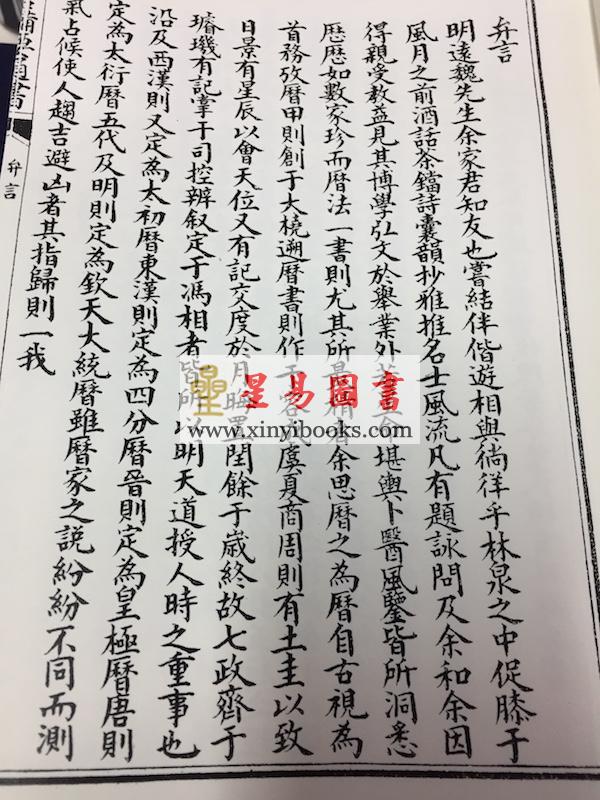 弁言
明遠魏先生余家君知友也嘗結伴偕遊相與徜徉乎林泉之中促膝于
風月之前酒話茶鐺詩囊韻抄雅推名士風流凡有題詠問及余和余因
得親受教益見其博學弘文於舉業外堪輿卜醫風鑒皆所洞悉
歷歷如數家珍而曆法一書則尤其所余思曆之為曆自古視為
首務攷曆甲則創于大橈遡曆書則作于容虞夏商周則有土圭以致
日景有星辰以會天位又有記交度於月晦閏餘于歲終故七政齊于
璿璣有記掌于司控辨叙定于馮相者皆所以明天道授人時之重事也
沿及西漢則又定為太初曆東漢則定為四分曆晉則定為皇極曆唐則
定為大衍曆五代及明則定為欽天大統曆雖曆家之說紛紛不同而測
氣占候使人趨吉避凶者其指歸則一我
通書
弁言
星易圖書
www.xinyibooks.com